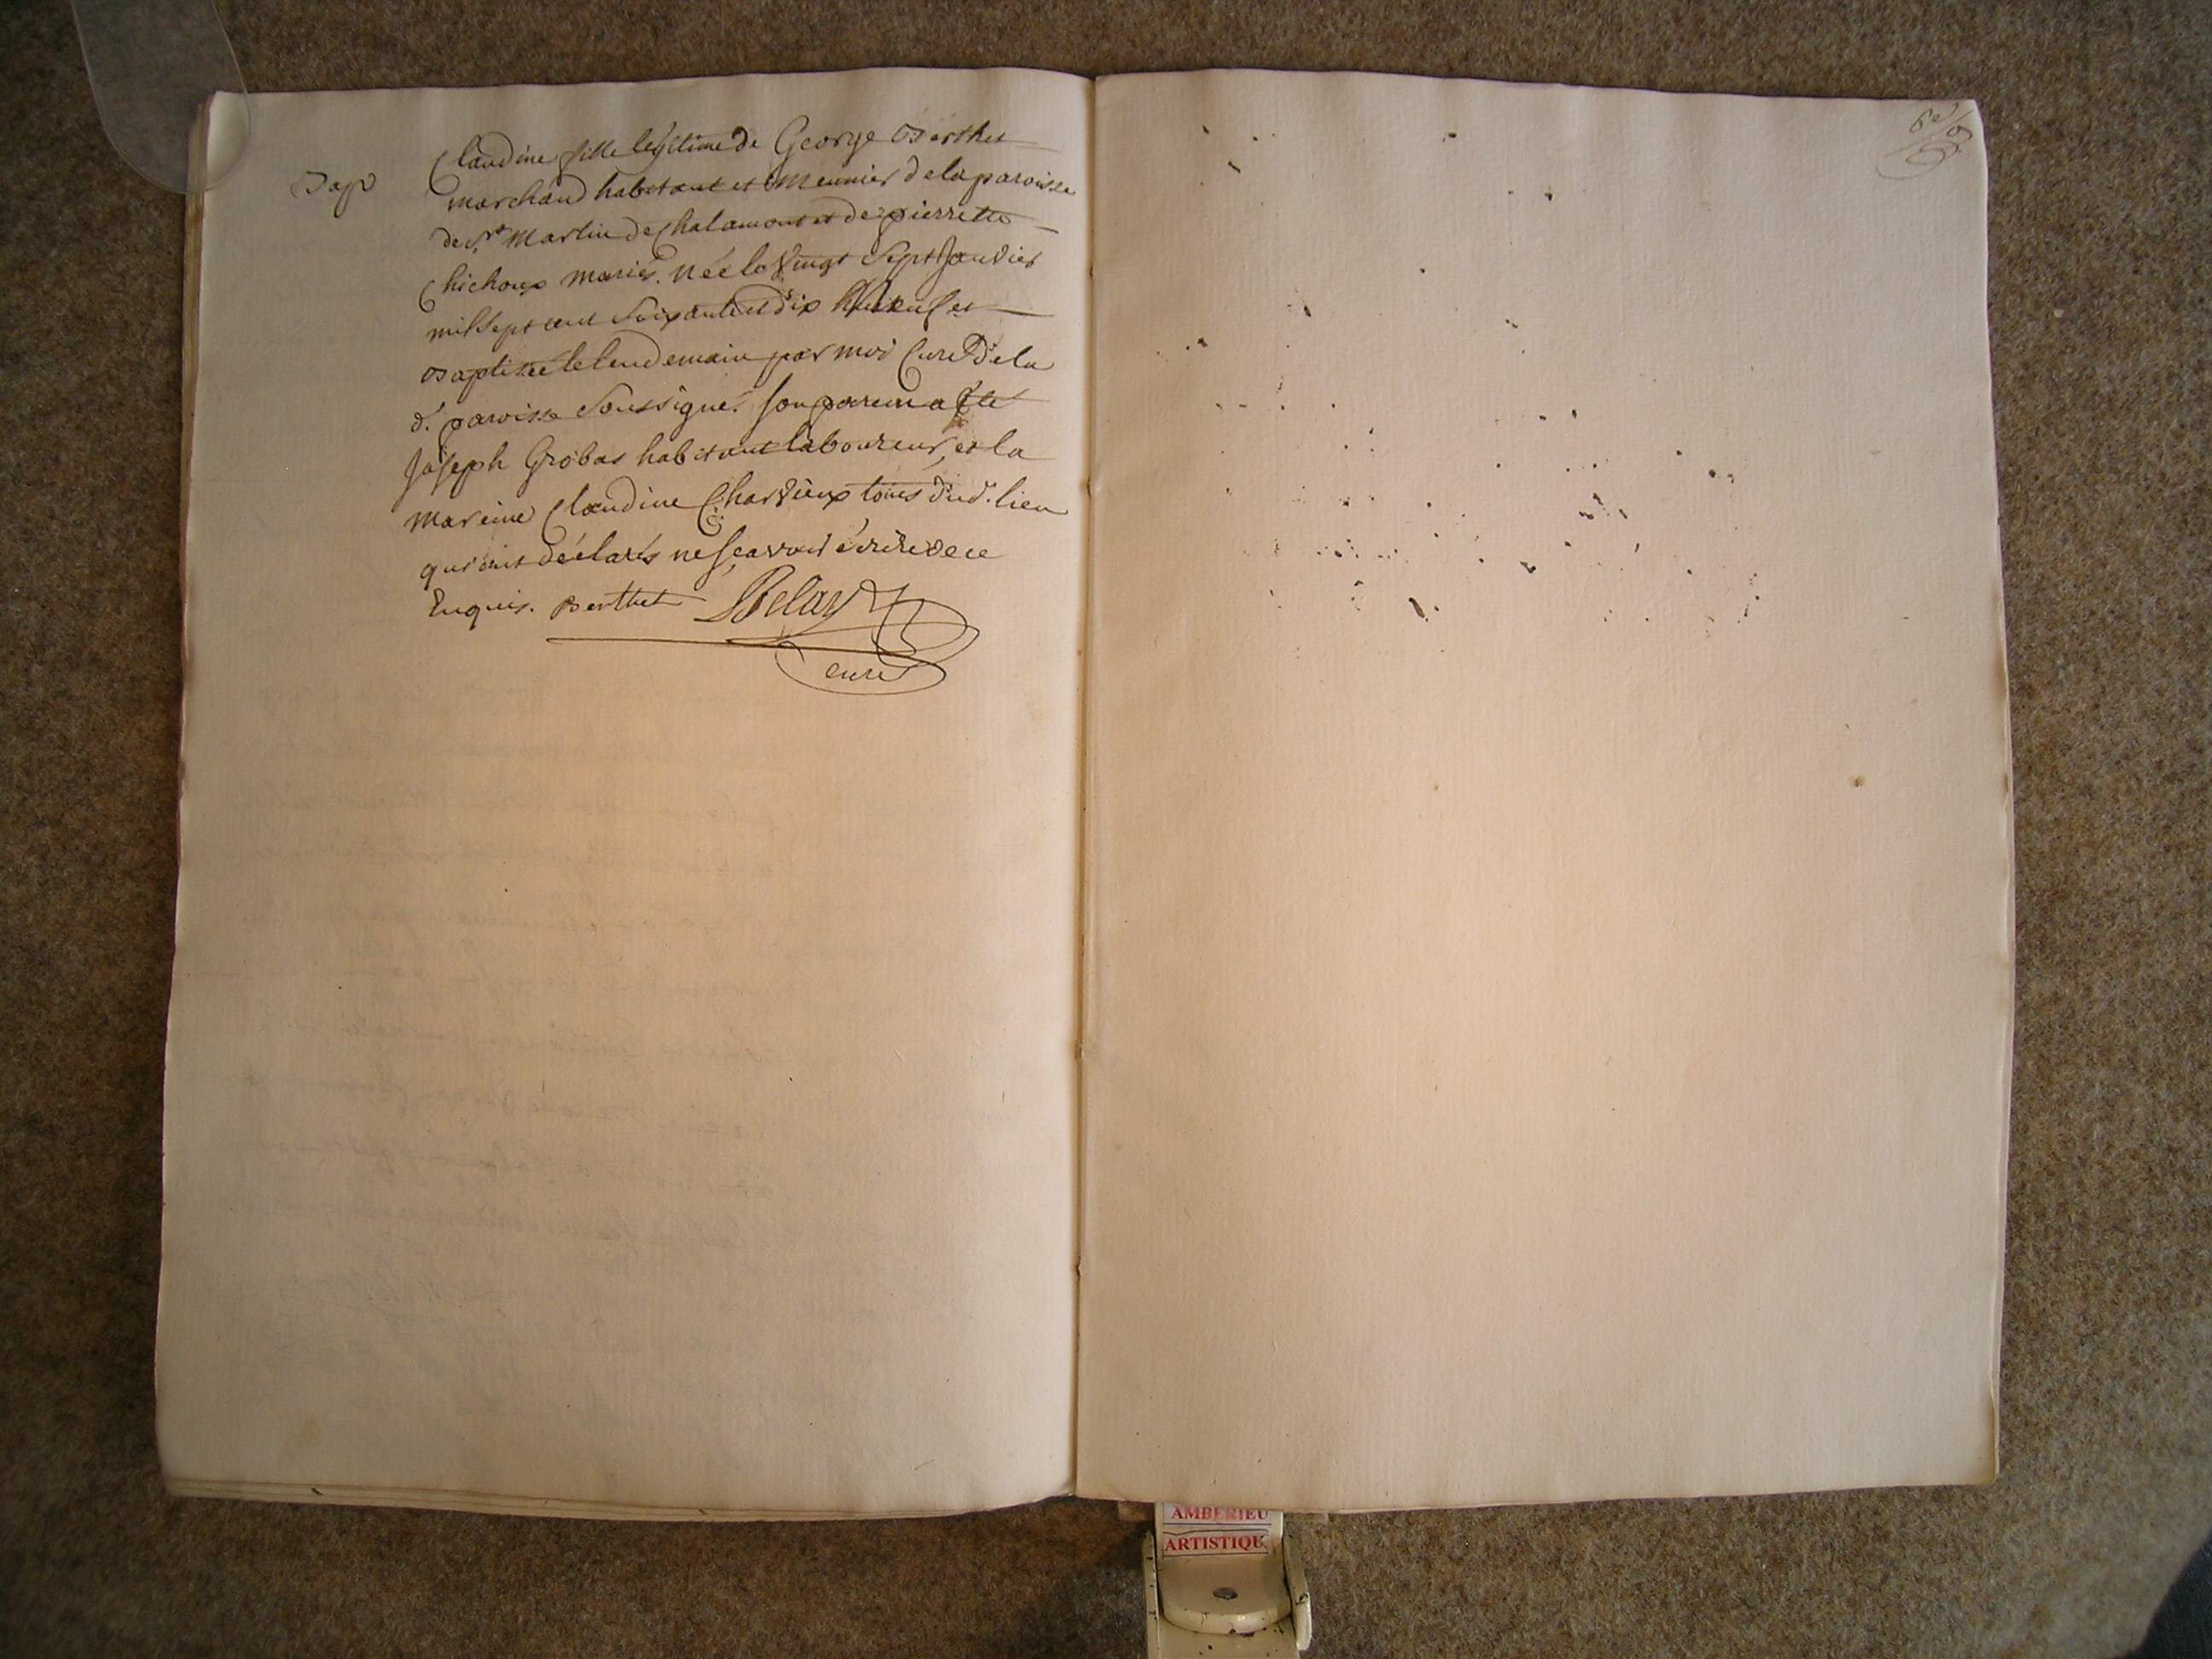 Bap
Claudine fille légitime de George Berthet
marchand habitant et Meunier de la paroisse
de St Martin de Chalamont et de pierrette
Chichoux mariés. née le vingt Sept Janvier
mil Sept cent Soixante et dix neuf et
Baptisée le lendemain par moi Curé de la
d. paroisse Soussigné. son parein a été
Joseph Grobas habitant laboureur, et la
mareine Claudine Charvieux tous dud. lieu
qui ont déclarés ne sçavoir écrire de ce
Enquis. Berthet
curé
AMBERIEU
ARTISTIQU